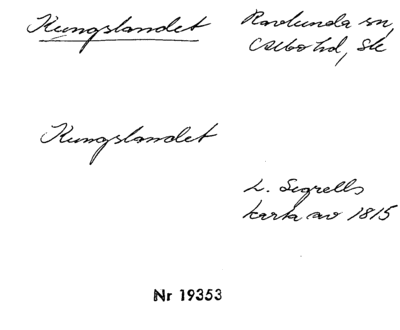 Kungslandet
Ravlunda sn,
Albo hd, Sk
Kungslandet
L. Segrells
karta av 1815
Nr 19353